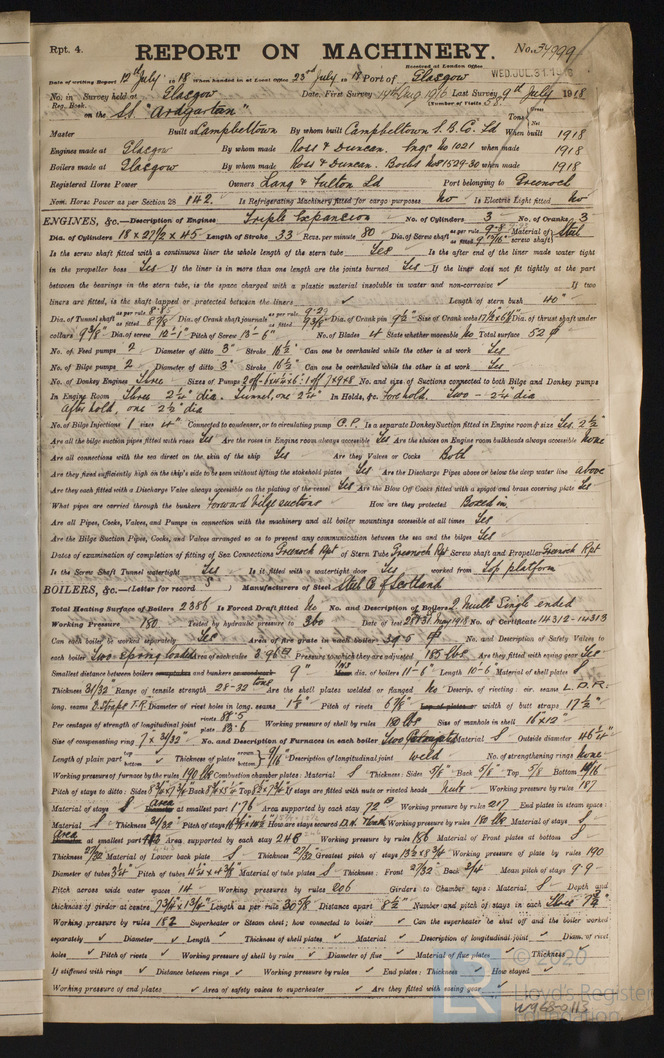 Rpt. 4.
REPORT ON MACHINERY.
No. 37999
Received at London Office WED. JUL. 31. 1918
Date of writing Report 12th July 1918 When handed in at Local Office 23rd July 1918 Port of Glasgow
No. in Survey held at Glasgow Date, First Survey 14th Aug 1916 Last Survey 9th July 1918
Reg. Book. (Number of Visits 58)
on the SS. "Ardgartan" Tons Gross Net
Master Built at Campbeltown By whom built Campbeltown S.B. Co. Ld When built 1918
Engines made at Glasgow By whom made Ross & Duncan. Engs No 1021 when made 1918
Boilers made at Glasgow By whom made Ross & Duncan. Boilers Nos 1529-30 when made 1918
Registered Horse Power Owners Lang & Fulton Ld Port belonging to Greenock
Nom. Horse Power as per Section 28 142. Is Refrigerating Machinery fitted for cargo purposes No Is Electric Light fitted No
ENGINES, &c.—Description of Engines Triple Expansion No. of Cylinders 3 No. of Cranks 3
Dia. of Cylinders 18 x 27 1/2 x 45 Length of Stroke 33 Revs. per minute 80 Dia. of Screw shaft as per rule 9-8 as fitted Material of screw shaft Steel
Is the screw shaft fitted with a continuous liner the whole length of the stern tube Yes Is the after end of the liner made water tight
in the propeller boss Yes If the liner is in more than one length are the joints burned Yes If the liner does not fit tightly at the part
between the bearings in the stern tube, is the space charged with a plastic material insoluble in water and non-corrosive ✓ If two
liners are fitted, is the shaft lapped or protected between the liners ✓ Length of stern bush 40"
Dia. of Tunnel shaft as per rule 8-85 as fitted 8 7/8 Dia. of Crank shaft journals as per rule 9-29 as fitted 9 3/8 Dia. of Crank pin 9 1/2" Size of Crank webs Dia. of thrust shaft under
collars 9 3/8" Dia. of screw 12'-1" Pitch of Screw 13'-6" No. of Blades 4 State whether moveable No Total surface 52
No. of Feed pumps 2 Diameter of ditto 3" Stroke 16 1/2" Can one be overhauled while the other is at work Yes
No. of Bilge pumps 2 Diameter of ditto 3" Stroke 16 1/2" Can one be overhauled while the other is at work Yes
No. of Donkey Engines Three Sizes of Pumps No. and size of Suctions connected to both Bilge and Donkey pumps
In Engine Room Three 2 1/4" dia. Tunnel, one 2 1/4" In Holds, &c. Fore hold. Two - 2 1/4 dia
After hold, one 2 1/2" dia
No. of Bilge Injections 1 sizes 4" Connected to condenser, or to circulating pump C.P. Is a separate Donkey Suction fitted in Engine room & size Yes. 2 1/2"
Are all the bilge suction pipes fitted with roses Yes Are the roses in Engine room always accessible Yes Are the sluices on Engine room bulkheads always accessible None
Are all connections with the sea direct on the skin of the ship Yes Are they Valves or Cocks Both
Are they fixed sufficiently high on the ship's side to be seen without lifting the stokehold plates Yes Are the Discharge Pipes above or below the deep water line above
Are they each fitted with a Discharge Valve always accessible on the plating of the vessel Yes Are the Blow Off Cocks fitted with a spigot and brass covering plate Yes
What pipes are carried through the bunkers Forward bilge suctions How are they protected Boxed in.
Are all Pipes, Cocks, Valves, and Pumps in connection with the machinery and all boiler mountings accessible at all times Yes
Are the Bilge Suction Pipes, Cocks, and Valves arranged so as to prevent any communication between the sea and the bilges Yes
Dates of examination of completion of fitting of Sea Connections Greenock Rpt of Stern Tube Greenock Rpt Screw shaft and Propeller Greenock Rpt
Is the Screw Shaft Tunnel watertight Yes Is it fitted with a watertight door Yes worked from Top platform
BOILERS, &c.—(Letter for record S) Manufacturers of Steel Steel Co of Scotland
Total Heating Surface of Boilers 2386 Is Forced Draft fitted No No. and Description of Boilers 2 Mult. Single ended
Working Pressure 180 Tested by hydraulic pressure to 360 Date of test 28 & 31 May 1918 No. of Certificate 14312-14313
Can each boiler be worked separately Yes Area of fire grate in each boiler 39.5 No. and Description of Safety Valves to
each boiler Two Spring loaded Area of each valve 3.96 Pressure to which they are adjusted 185 lbs Are they fitted with easing gear Yes
Smallest distance between boilers and bunkers 9" dia. of boilers 11'-6" Length 10'-6" Material of shell plates S
Thickness 31/32" Range of tensile strength 28-32 tons Are the shell plates welded or flanged No Descrip. of riveting: cir. seams L.D.R.
long. seams D. Straps T.R. Diameter of rivet holes in long. seams Pitch of rivets 6 7/8" width of butt straps 17 1/2"
Per centages of strength of longitudinal joint rivets 88.5 plate 83.6 Working pressure of shell by rules 180 lbs Size of manhole in shell 16" x 12"
Size of compensating ring 7 x 31/32" No. and Description of Furnaces in each boiler Two Corrugated Material S Outside diameter
Length of plain part top bottom Thickness of plates crown bottom 9/16" Description of longitudinal joint weld No. of strengthening rings none
Working pressure of furnace by the rules 190 lbs Combustion chamber plates: Material S Thickness: Sides 5/8" Back 5/8" Top 5/8 Bottom
Pitch of stays to ditto: Sides Back Top If stays are fitted with nuts or riveted heads nuts Working pressure by rules 187
Material of stays S area at smallest part 1.76 Area supported by each stay 72 Working pressure by rules 217 End plates in steam space:
Material S Thickness 31/32" Pitch of stays How are stays secured D.N. Working pressure by rules 180 lbs Material of stays S
Area at smallest part Area supported by each stay 248 Working pressure by rules 186 Material of Front plates at bottom S
Thickness 27/32 Material of Lower back plate S Thickness 27/32 Greatest pitch of stays 13 1/2 x 8 3/4 Working pressure of plate by rules 190
Diameter of tubes 3 1/4" Pitch of tubes 4 1/2 x 4 3/8 Material of tube plates S Thickness: Front 27/32 Back 3/4 Mean pitch of stays 9-9
Pitch across wide water spaces 14 Working pressures by rules 206 Girders to Chamber tops: Material S Depth and
thickness of girder at centre 7 3/4" x 1 3/4" Length as per rule 30 5/8 Distance apart 8 1/2" Number and pitch of stays in each Three 7 1/2"
Working pressure by rules 182 Superheater or Steam chest; how connected to boiler ✓ Can the superheater be shut off and the boiler worked
separately ✓ Diameter ✓ Length ✓ Thickness of shell plates ✓ Material ✓ Description of longitudinal joint ✓ Diam. of rivet
holes ✓ Pitch of rivets ✓ Working pressure of shell by rules ✓ Diameter of flue ✓ Material of flue plates Thickness
If stiffened with rings ✓ Distance between rings ✓ Working pressure by rules ✓ End plates: Thickness How stayed
Working pressure of end plates ✓ Area of safety valves to superheater ✓ Are they fitted with easing gear ✓
© 2020
LR
Lloyd's Register
Foundation
W968-0113